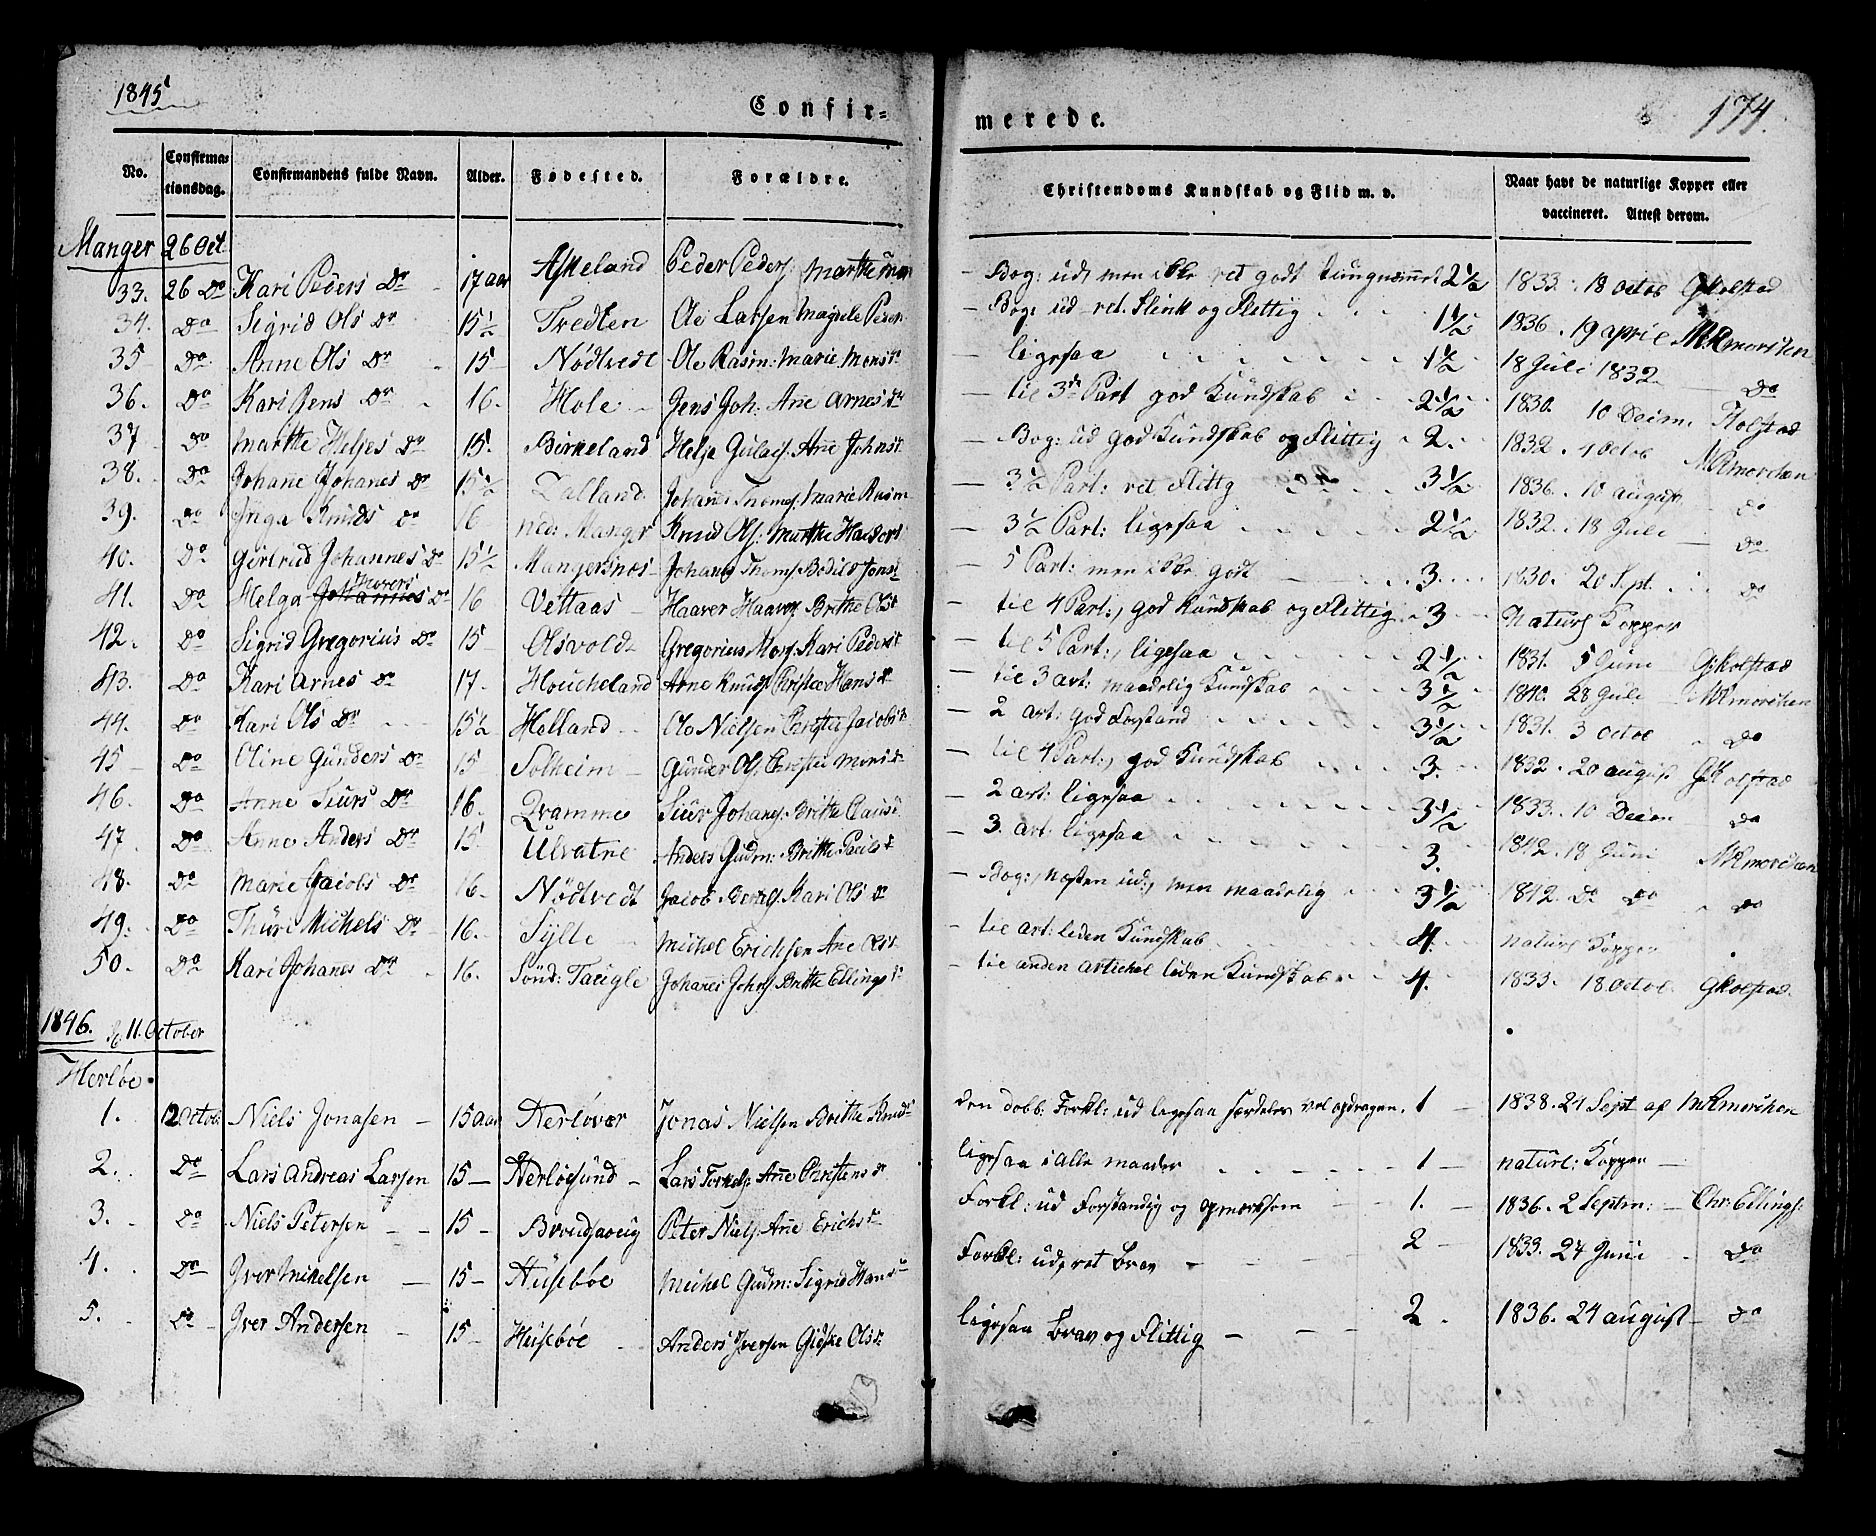 1845
Confir-
merede.
174.
No.
Confirma-
tionsdag.
Confirmandens fulde Navn.
Alder.
Fødested.
Forældre.
Christendoms Kundskab og Flid m. v.
Naar havt de naturlige Kopper eller
vaccineret. Attest derom.
Manger 26 Oct.
33. 26 Do Kari Peders Dr 17 aar Askeland Peder Peders: Marthe — Bog: ud, men ikke ret godt 2½ 1833. 18 Octob GKolstad
34. Do Sigrid Ols Dr 15½ Tredten Ole Larsen Magdele Peder — Bog: ud ret flink og flittig 1½ 1836. 19 april MRmorchen
35 Do Anne Ols Dr 15 Nødtvedt Ole Rasm: Marie Mons — ligesaa 1½ 18 Juli 1832. Do
36. Do Kari Jens Dr 16. Hole Jens Joh: Ane Arnes Dr — til 3die Part god Kundskab 2½ 1830. 10 Decim. Kolstad
37 Do Marthe Heljes Dr 15. Birkeland Helje Gulacs: Ane Johns — Bog: ud god Kundskab og flittig 2. 1832. 4 Octob MRmorchen
38. Do Johane Johanes Dr 15½ Johans Thomes: Marie Rasm — 3½ Part: ret flittg 3½ 1836. 10 august Do
39. Do Knuds Dr 16 Manger Knud Ols: Marthe — 3½ Part: ligesaa 2½ 1832. 18 Juli Do
40. Do Gertrud Johannes Dr 15½ Mangersnes Johans Thoms. Bodild Jons — 5 Part: men ikke godt 3. 1830. 20 Sept. Do
41. Do Helga Johannes Dr 16 Vettaas Haaver Brithe Ols — til 4 Part:, god Kundskab og flittig 3 Naturl Kopper
42. Do Sigrid Gregorius Dr 15 Olsvold Gregorius Kari Peders — til 5 Part:, ligesaa 2½ 1831. 5 Juni GKolstad
43. Do Kari Arnes Dr 17. Arne Knuds: Christie Hans Dr — til 3 art: maadelig Kundskab 3½ 1840. 28 Juli MRmorchen
44. Do Kari Ols Dr 15½ Helland Ole Nielsen Christie Jacobs — 2 art: god Forstand 3½ 1831. 3 Octob Do
45 Do Oline Gunders Dr 15 Solheim Gunder Ols: Christie Mons — til 4 Part:, god Kundskab 3. 1832. 20 august GKolstad
46. Do Anne Siurs Dr 16. Qvamme Siur Johans: Britte Claus — 2 art: ligesaa 3½ 1833. 10 Do
47 Do Anne Anders Dr 15. Ulvatne Anders Gudm: Britte — 3. art: ligesaa 3. 1842. 18 Juni MRmorchen
48. Do Marie Jacobs Dr 16. Nødtvedt Jacob Kari Ols Dr — Bog:, næsten ud:, men maadelig 3½ 1842. Do Do Do
49. Do Thuri Michels Dr 16. Sylte Michel Erichsen Ane Ols — til art: liden Kundskab 4. Naturl Kopper
50. Do Kari Johanes Dr 16. Sønd: Taugle Johanes Johs: Britte Ellings — til anden artichel liden Kundskab 4. 1833. 18 Octob. GKolstad.
1846. 11. October
Herløe
1. 12 Octob: Niels Jonasen 15 aar Herløver Jonas Nielsen Brithe Knuds den dobb. Forkl: ud ligesaa særdeles vel opdragen. 1 1838. 24 Sept af MRmorchen
2. Do Lars Andreas Larsen 15 Herløsund Lars Torkels: Ane Christens Dr ligesaa i alle maader 1 naturl: Kopper
3. Do Niels Petersen 15 Peter Niels: Ane Erichs Forkl: ud Forstandig og opmærksom 1. 1836. 2 Septm: Chr: Ellings:
4. Do Iver Mikelsen 15 Husebøe Michel Gudm: Sigrid Hans Forkl: ud, ret brav 2 1833. 24 Juni Do
5. Do Iver Andersen 15 Husebøe Anders Iversen Gidske Ols ligesaa brav og flittig 2. 1836. 24 august Do